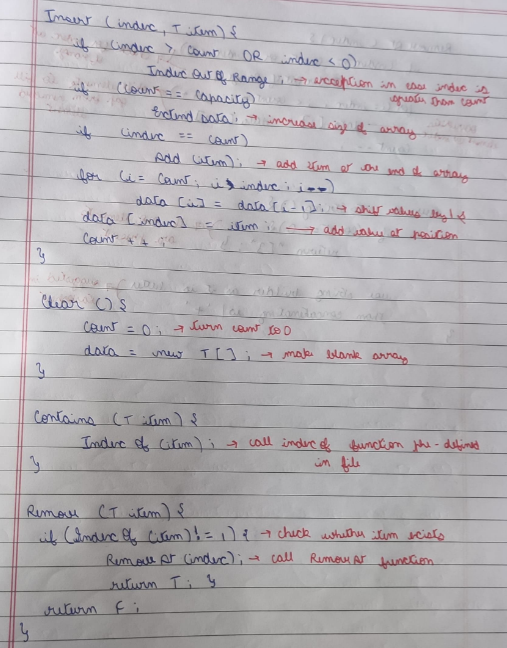 Insert (index, T item) {
if (index > count OR index < 0)
Index Out Of Range ; → exception in case index is greater than count
if (count == capacity)
Extend Data ; → increase size of array
if (index == count)
Add (item) ; → add item at the end of array
for (i = count ; i > index ; i--)
data [i] = data [i-1] ; → shift values by 1
data [index] = item ; → add value at position
count ++ ;
}
Clear () {
count = 0 ; → turn count to 0
data = new T [] ; → make blank array
}
Contains (T item) {
Index Of (item) ; → call index of function pre-defined
in file
}
Remove (T item) {
if (Index Of (item) != 1) { → check whether item exists
Remove At (index) ; → call Remove At function
return T ; }
return F ;
}